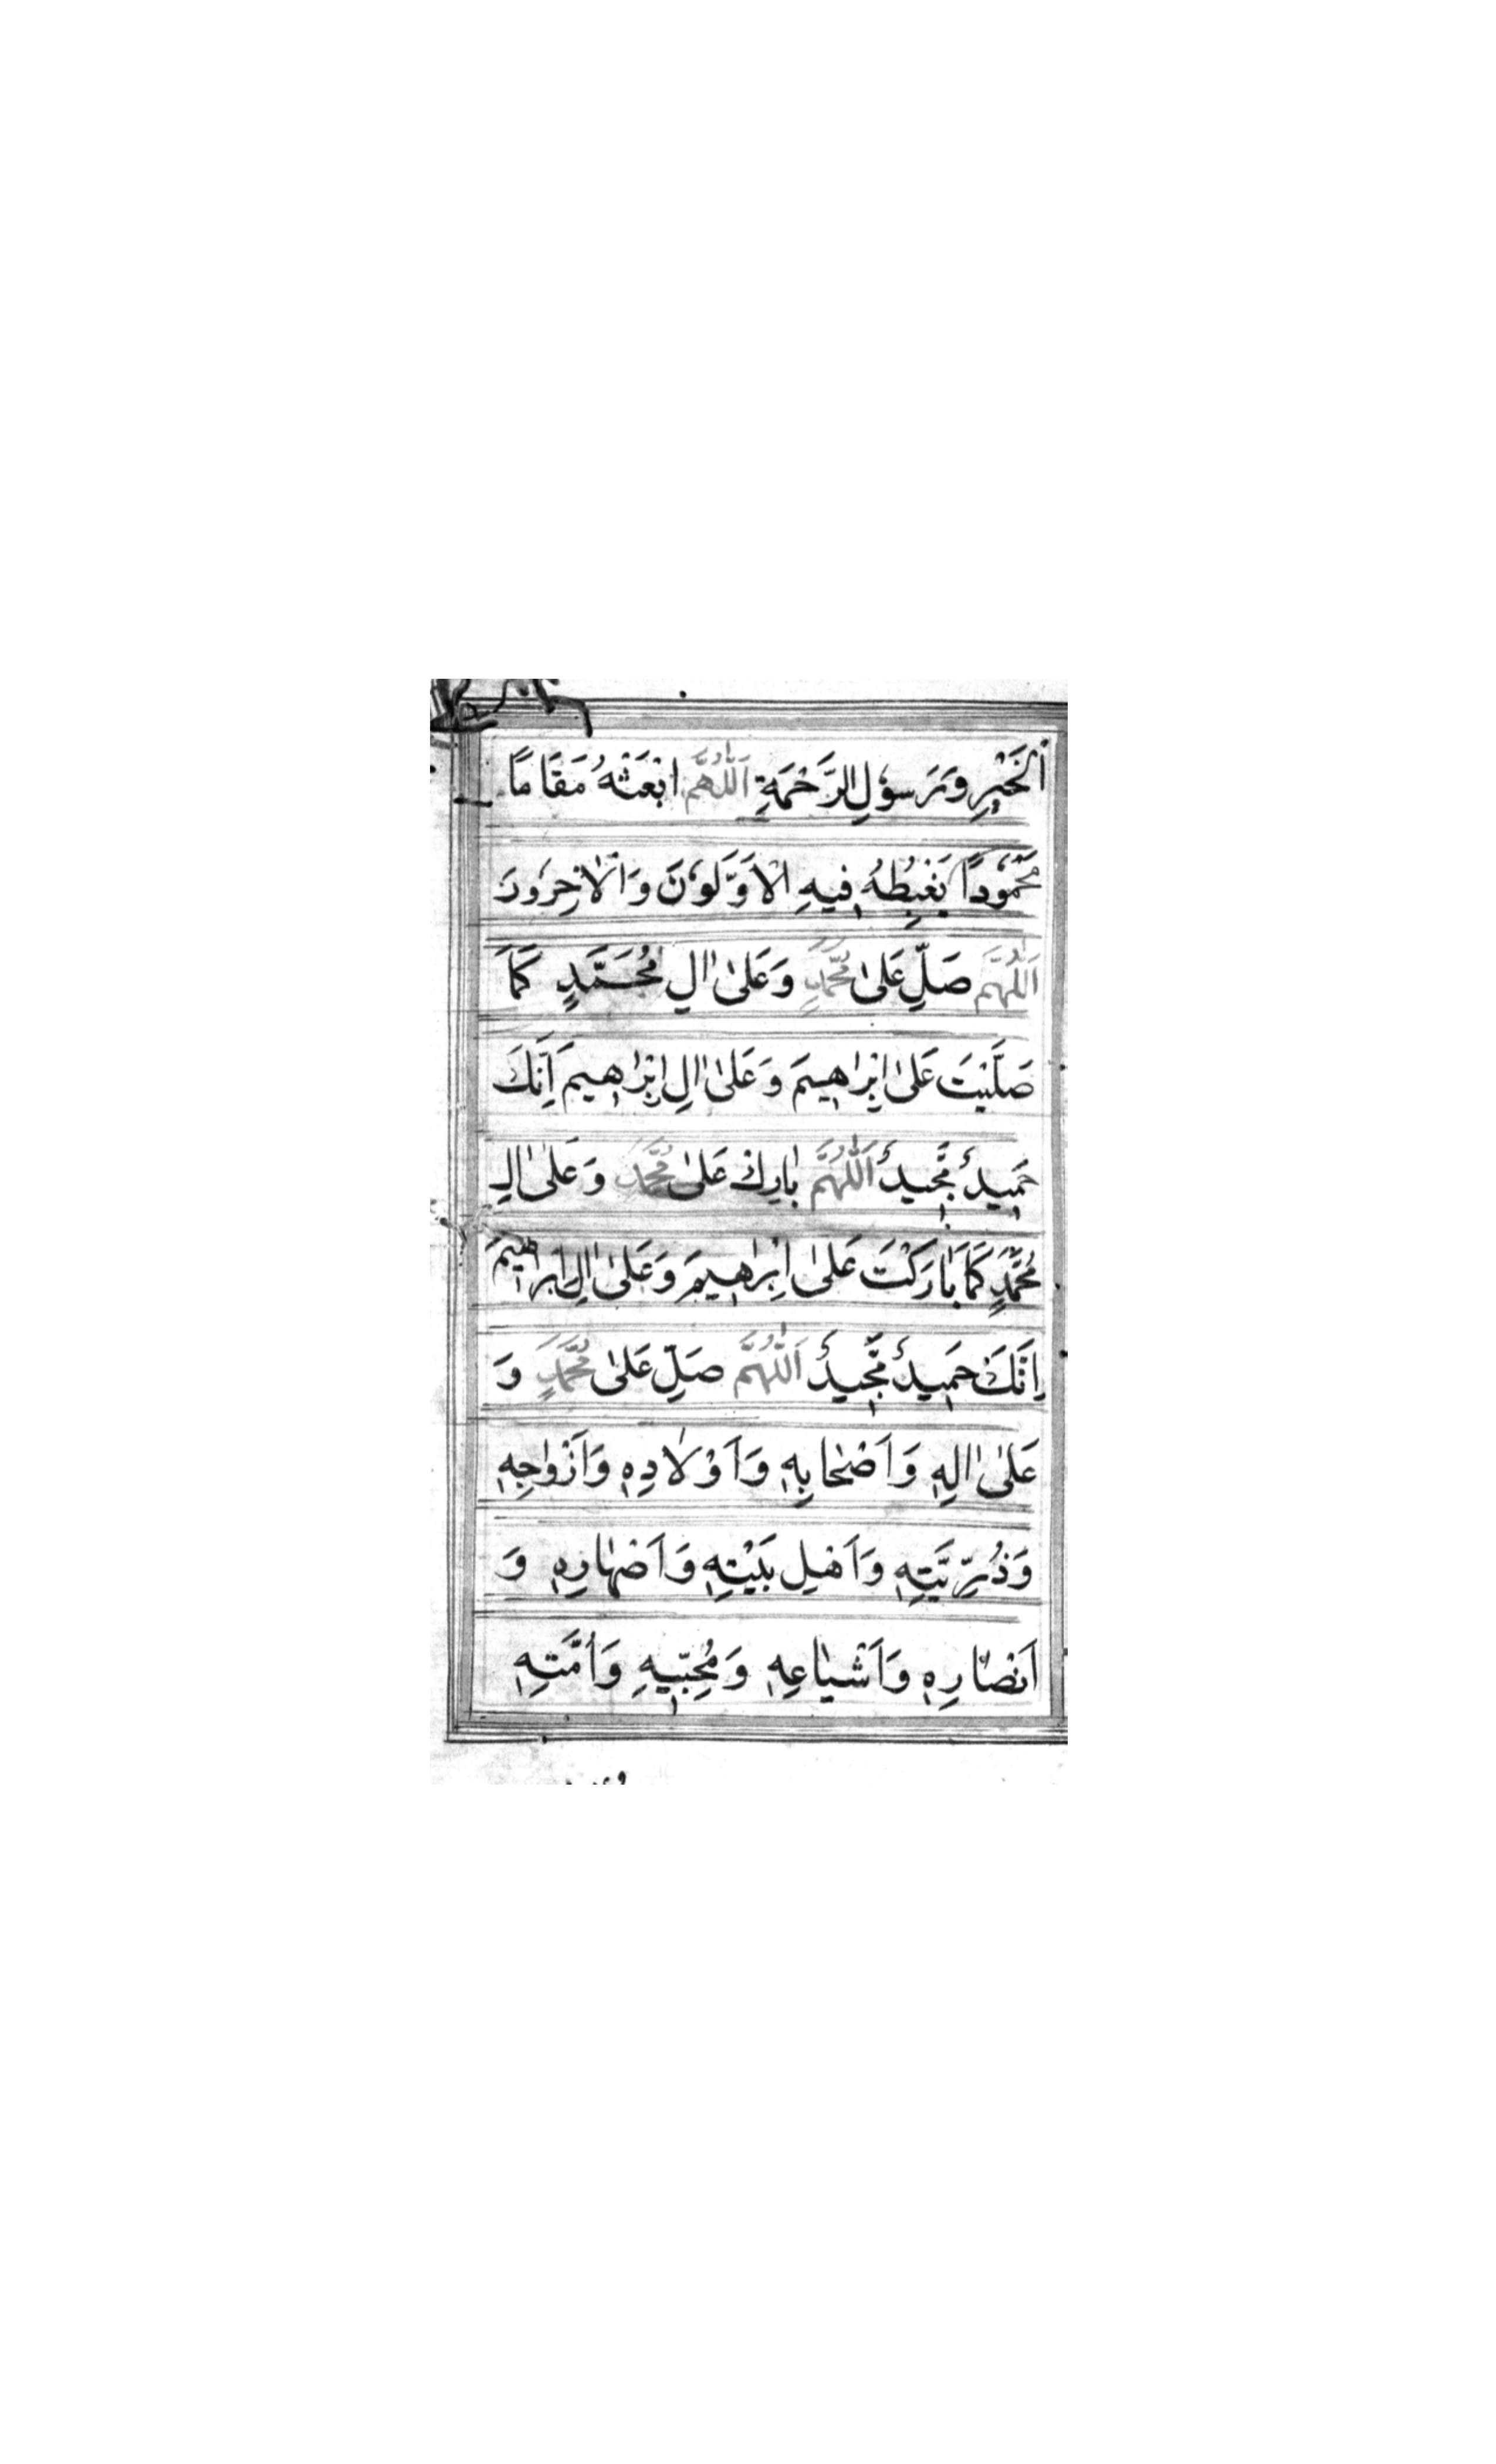 اَلْخَيْرِ وَرَسُوْلِ الرَّحْمَةِ اَللّٰهُمَّ ابْعَثْهُ مَقَامًا
مَحْمُوْدًا يَغْبِطُهٗ فِيهِ الْاَوَّلُوْنَ وَالْاٰخِرُوْنَ
اَللّٰهُمَّ صَلِّ عَلٰى مُحَمَّدٍ وَعَلٰى اٰلِ مُحَمَّدٍ كَمَا
صَلَّيْتَ عَلٰى اِبْرٰاهِيْمَ وَعَلٰى اٰلِ اِبْرٰاهِيْمَ اِنَّكَ
حَمِيدٌ مَّجِيدٌ اَللّٰهُمَّ بٰارِكْ عَلٰى مُحَمَّدٍ وَعَلٰى اٰلِ
مُحَمَّدٍ كَمَا بَارَكْتَ عَلٰى اِبْرٰاهِيْمَ وَعَلٰى اٰلِ اِبْرَاهِيْمَ
اِنَّكَ حَمِيدٌ مَّجِيدٌ اَللّٰهُمَّ صَلِّ عَلٰى مُحَمَّدٍ وَ
عَلٰى اٰلِهٖ وَاَصْحٰابِهٖ وَاَوْلَادِهٖ وَاَزْوٰاجِهٖ
وَذُرِّيَّتِهٖ وَاَهْلِ بَيْتِهٖ وَاَصْهٰارِهٖ وَ
اَنْصَارِهٖ وَاَشْيٰاعِهٖ وَمُحِبِّيهِ وَاُمَّتِهٖ